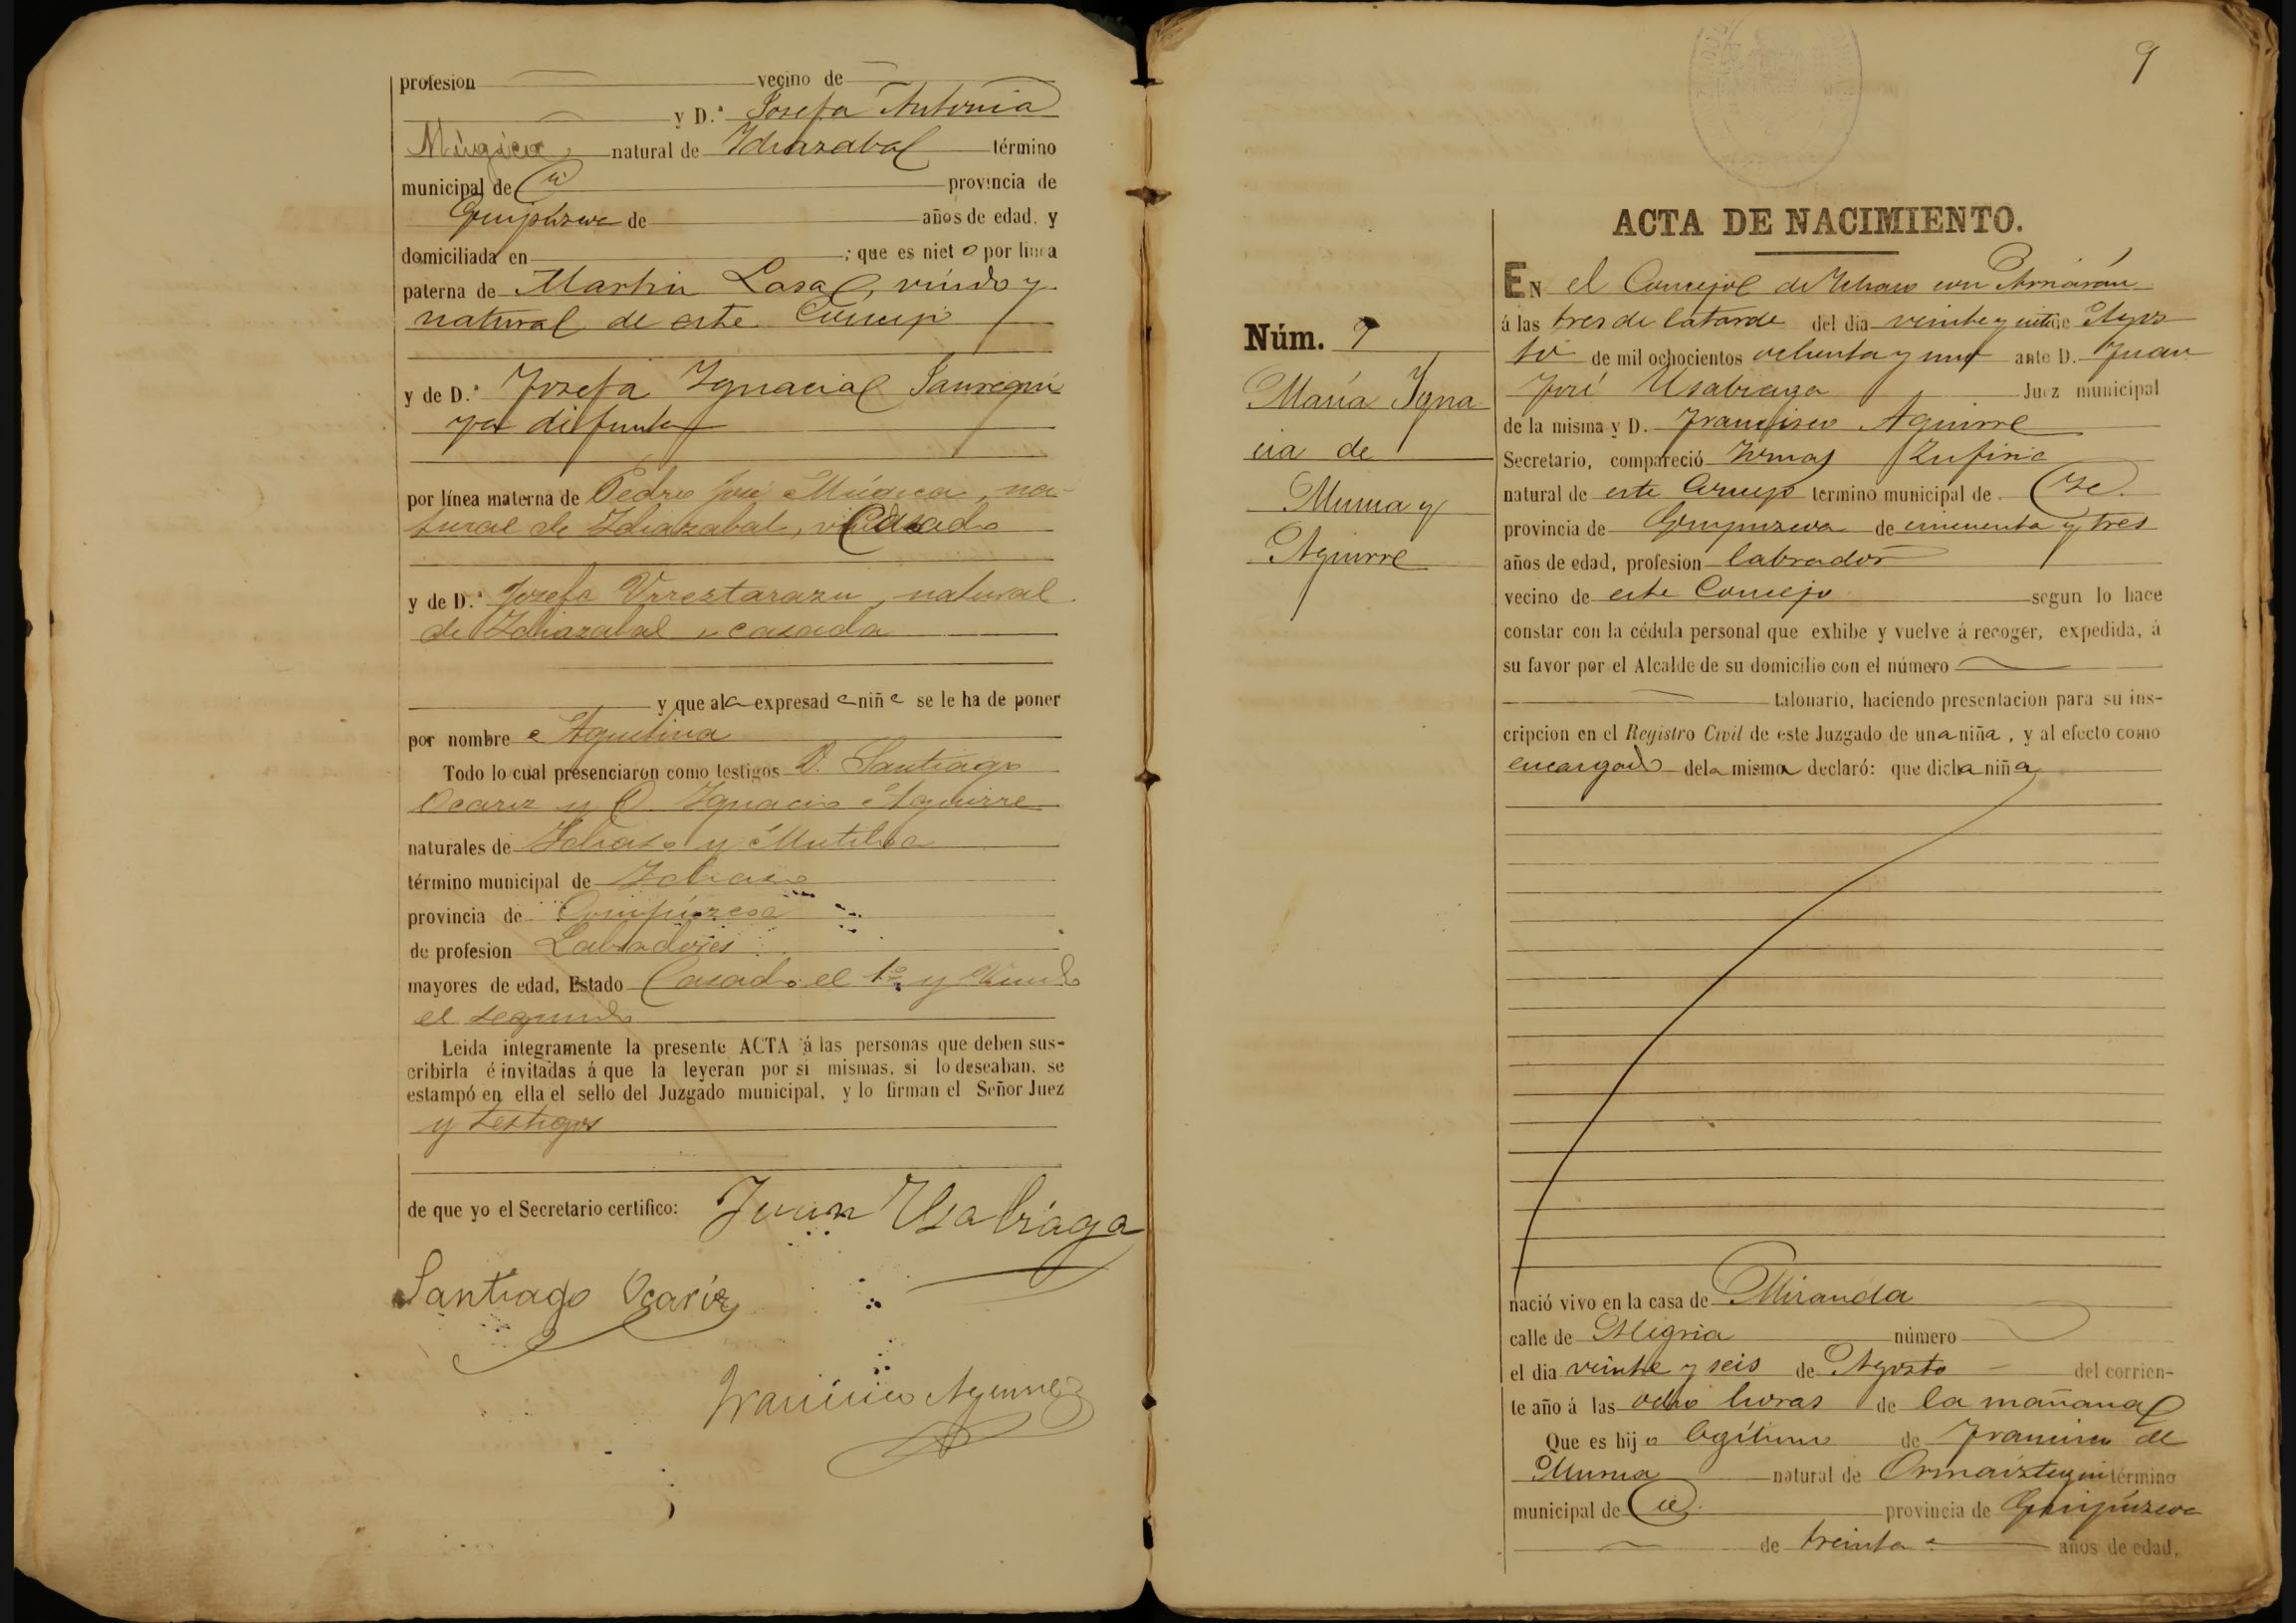 profesion vecino de
y D.ª Josefa Antonia
Múgica, natural de Idiazabal término
municipal de id provincia de
Guipúzcoa de años de edad, y
domiciliada en ; que es nieto por línea
paterna de Martin Lasa, viudo y
natural de este Concejo
y de D.ª Josefa Ignacia Jauregui
ya difunta
por línea materna de Pedro José Múgica, na-
tural de Idiazabal, Casado
y de D.ª Josefa Urreztarazu, natural
de Idiazabal casada
y que ala expresada niña se le ha de poner
por nombre Agustina
Todo lo cual presenciaron como testigos D. Santiago
Ocariz y D. Ignacio Aguirre
naturales de Ichaso y Mutiloa
término municipal de Ichaso
provincia de Guipúzcoa
de profesion Labradores
mayores de edad, Estado Casado el 1º y Viudo
el segundo
Leida integramente la presente ACTA á las personas que deben sus-
cribirla é invitadas á que la leyeran por sí mismas, si lo deseaban, se
estampó en ella el sello del Juzgado municipal, y lo firman el Señor Juez
y testigos
de que yo el Secretario certifico: Juan Usabiaga
Santiago Ocariz
Francisco Aguirre
9
ACTA DE NACIMIENTO.
EN el Concejo de Ichaso con Arriarán
á las tres de la tarde del dia veinte y siete de Agos
to de mil ochocientos ochenta y uno ante D. Juan
José Usabiaga Juez municipal
de la misma y D. Francisco Aguirre
Secretario, compareció Rufino
natural de este Concejo término municipal de
provincia de Guipuzcoa de cincuenta y tres
años de edad, profesion labrador
vecino de este Concejo segun lo hace
constar con la cédula personal que exhibe y vuelve á recoger, expedida, á
su favor por el Alcalde de su domicilio con el número
talonario, haciendo presentacion para su ins-
cripcion en el Registro Civil de este Juzgado de una niña, y al efecto como
encargado dela misma declaró: que dicha niña
Núm. 9
María Igna
cia de
Murua y
Aguirre
nació vivo en la casa de Miranda
calle de Alegria número
el dia veinte y seis de Agosto del corrien-
te año á las ocho horas de la mañana
Que es hijo legítimo de Francisco de
Murua natural de Ormaiztegui término
municipal de id. provincia de Guipúzcoa
de treinta años de edad,